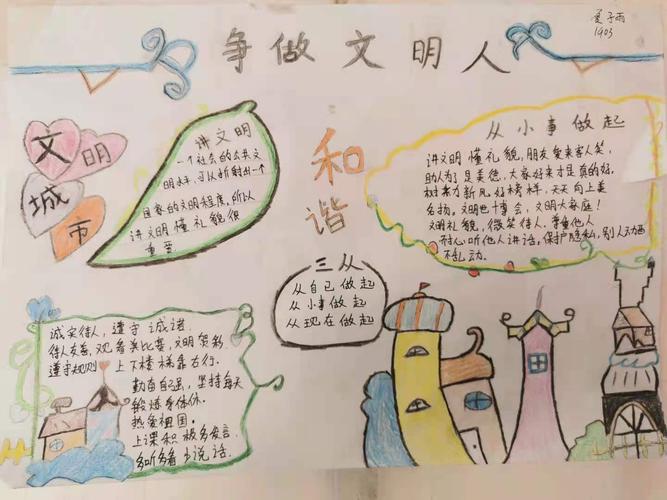 争做文明人
子雨
1903
文明
城市
讲文明
一个社会的公共文
明水平,可以折射出一个
国家的文明程度,所以
讲文明懂礼貌很
重要
和谐
从小事做起
讲文明懂礼貌,朋友爱来客人笑,
助人为了是美德,大家好来才是真的好。
树本力新风好榜样,天天向上美
名扬。文明出十博会,文明大家庭!
文明礼貌,微笑待人。尊重他人
开心听他人讲话,保护隐私,别人东西
不乱动。
三从
从自己做起
从小事做起
从现在做起
诚实待人,遵守诺。
待人友善,观看美比赛,文明贺彩,
遵守规则 上下楼梯靠右行。
勤奋自强,坚持每天
锻炼身体休。
热爱祖国。
上课积极多发言。
多听多看少说话。